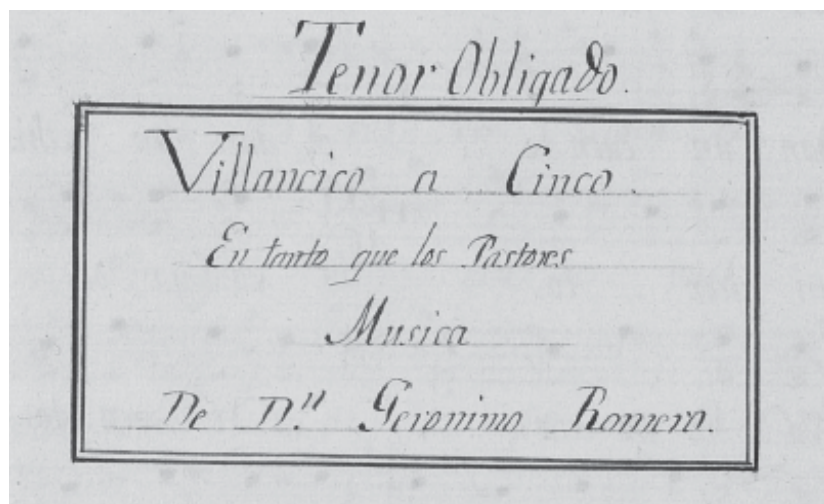 Tenor Obligado.
Villancico a Cinco.
En tanto que los Pastores
Musica
De D.ⁿ Geronimo Romero.